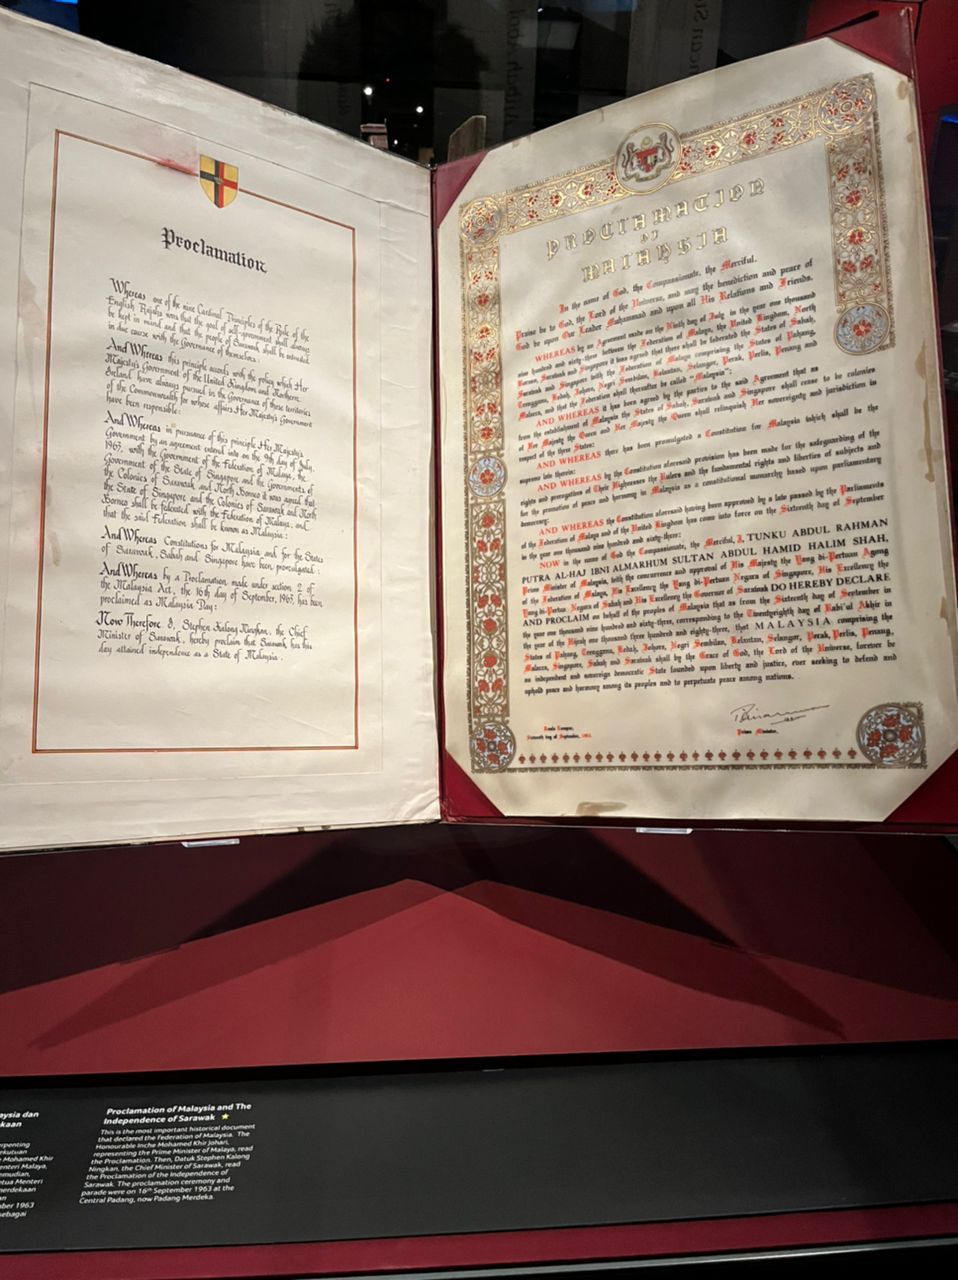 Proclamation
Whereas one of the nine Cardinal Principles of the Rule of the
English Rajahs was that the goal of self-government shall always
be kept in mind and that the people of Sarawak shall be entrusted
in due course with the Governance of themselves:
And Whereas this principle accords with the policy which Her
Majesty's Government of the United Kingdom and Northern
Ireland have always pursued in the Governance of these territories
of the Commonwealth for whose affairs Her Majesty's Government
have been responsible:
And Whereas in pursuance of this principle Her Majesty's
Government by an agreement entered into on the 9th day of July,
1963, with the Government of the Federation of Malaya, the
Government of the State of Singapore and the Governments of
the Colonies of Sarawak and North Borneo it was agreed that
the State of Singapore and the Colonies of Sarawak and North
Borneo shall be federated with the Federation of Malaya, and
that the said Federation shall be known as Malaysia:
And Whereas Constitutions for Malaysia and for the States
of Sarawak, Sabah and Singapore have been promulgated:
And Whereas by a Proclamation, made under section 2 of
the Malaysia Act, the 16th day of September, 1963, has been
proclaimed as Malaysia Day:
Now Therefore I, Stephen Kalong Ningkan, the Chief
Minister of Sarawak, hereby proclaim that Sarawak has this
day attained independence as a State of Malaysia.
PROCLAMATION
OF
MALAYSIA
In the name of God, the Compassionate, the Merciful.
Praise be to God, the Lord of the Universe, and may the benediction and peace of
God be upon Our Leader Muhammad and upon all His Relations and Friends.
WHEREAS by an Agreement made on the Ninth day of July in the year one thousand
nine hundred and sixty-three between the Federation of Malaya, the United Kingdom, North
Borneo, Sarawak and Singapore it was agreed that there shall be federated the States of Sabah,
Sarawak and Singapore with the Federation of Malaya comprising the States of Pahang,
Trengganu, Kedah, Johore, Negri Sembilan, Kelantan, Selangor, Perak, Perlis, Penang and
Malacca, and that the Federation shall thereafter be called "Malaysia":
AND WHEREAS it has been agreed by the parties to the said Agreement that as
from the establishment of Malaysia the States of Sabah, Sarawak and Singapore shall cease to be colonies
of Her Majesty the Queen and Her Majesty the Queen shall relinquish Her sovereignty and jurisdiction in
respect of the three States:
AND WHEREAS there has been promulgated a Constitution for Malaysia which shall be the
supreme law therein:
AND WHEREAS by the Constitution aforesaid provision has been made for the safeguarding of the
rights and prerogatives of Their Highnesses the Rulers and the fundamental rights and liberties of subjects and
for the promotion of peace and harmony in Malaysia as a constitutional monarchy based upon parliamentary
democracy:
AND WHEREAS the Constitution aforesaid having been approved by a law passed by the Parliaments
of the Federation of Malaya and of the United Kingdom has come into force on the Sixteenth day of September
in the year one thousand nine hundred and sixty-three:
NOW in the name of God the Compassionate, the Merciful, I, TUNKU ABDUL RAHMAN
PUTRA AL-HAJ IBNI ALMARHUM SULTAN ABDUL HAMID HALIM SHAH,
Prime Minister of Malaysia, with the concurrence and approval of His Majesty the Yang di-Pertuan Agong
of the Federation of Malaya, His Excellency the Yang di-Pertuan Negara of Singapore, His Excellency the
Yang di-Pertua Negara of Sabah and His Excellency the Governor of Sarawak DO HEREBY DECLARE
AND PROCLAIM on behalf of the peoples of Malaysia that as from the Sixteenth day of September in
the year one thousand nine hundred and sixty-three, corresponding to the Twentyeighth day of Rabi'ul Akhir in
the year of the Hijrah one thousand three hundred and eighty-three, that MALAYSIA comprising the
States of Pahang, Trengganu, Kedah, Johore, Negri Sembilan, Kelantan, Selangor, Perak, Perlis, Penang,
Malacca, Singapore, Sabah and Sarawak shall by the Grace of God, the Lord of the Universe, forever be
an independent and sovereign democratic State founded upon liberty and justice, ever seeking to defend and
uphold peace and harmony among its peoples and to perpetuate peace among nations.
Kuala Lumpur,
Sixteenth day of September, 1963.
Prime Minister.
Proclamation of Malaysia and The
Independence of Sarawak
This is the most important historical document
that declared the Federation of Malaysia. The
Honourable Inche Mohamed Khir Johari,
representing the Prime Minister of Malaya, read
the Proclamation. Then, Datuk Stephen Kalong
Ningkan, the Chief Minister of Sarawak, read
the Proclamation of the Independence of
Sarawak. The proclamation ceremony and
parade were on 16th September 1963 at the
Central Padang, now Padang Merdeka.